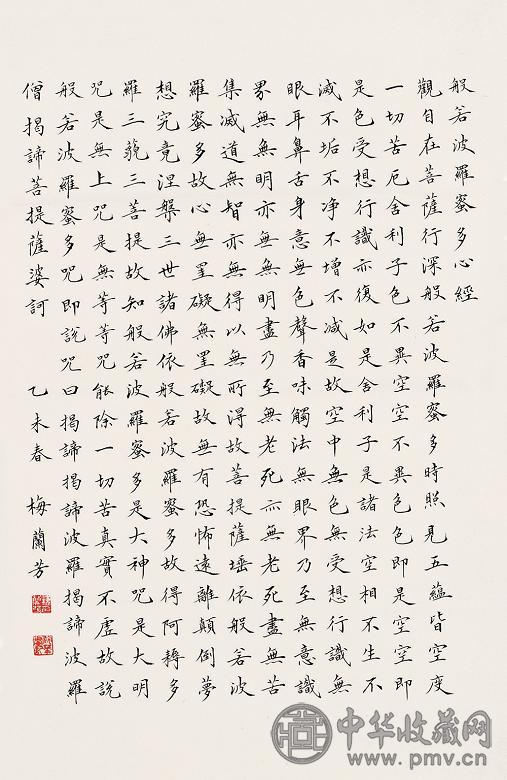 般若波羅蜜多心經
觀自在菩薩行深般若波羅蜜多時照見五蘊皆空度
一切苦厄舍利子色不異空空不異色色即是空空即
是色受想行識亦復如是舍利子是諸法空相不生不
滅不垢不净不增不減是故空中無色無受想行識無
眼耳鼻舌身意無色聲香味觸法無眼界乃至無意識
界無無明亦無無明盡乃至無老死亦無老死盡無苦
集滅道無智亦無得以無所得故菩提薩埵依般若波
羅蜜多故心無罣礙無罣礙故無有恐怖遠離顛倒夢
想究竟涅槃三世諸佛依般若波羅蜜多故得阿耨多
羅三藐三菩提故知般若波羅蜜多是大神咒是大明
咒是無上咒是無等等咒能除一切苦真實不虛故說
般若波羅蜜多咒即說咒曰揭諦揭諦波羅揭諦波羅
僧揭諦菩提薩婆訶 乙未春 梅蘭芳
中华收藏网
www.pmv.cn